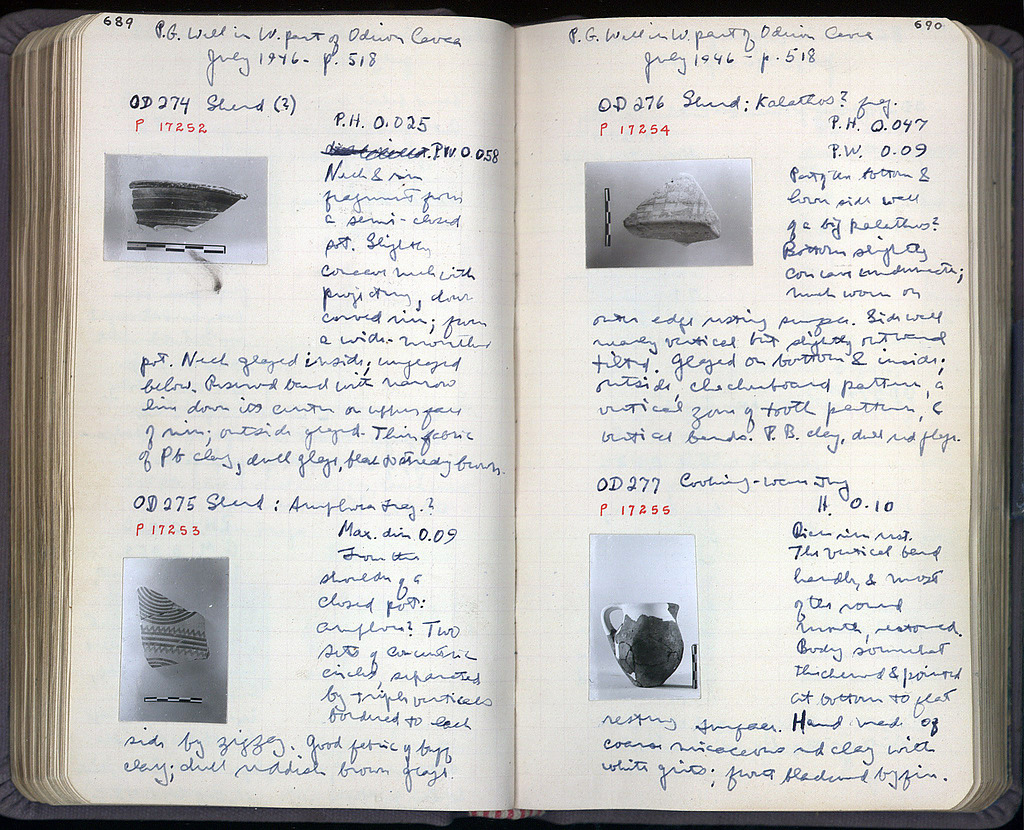 689
P.G. Well in W. part of Odeion Cavea
July 1946 - p. 518
OD 274 Sherd (?)
P 17252
P.H. 0.025
P.W. 0.058
Neck & rim
fragment from
a semi-closed
pot. Slightly
concave neck with
projecting, down
curved rim; from
a wide-mouthed
pot. Neck glazed inside; unglazed
below. Reserved band with narrow
line down its center on upper face
of rim; outside glazed. Thin fabric
of PB clay, dull glaze, black to streaky brown.
OD 275 Sherd: Amphora frag.?
P 17253
Max. dim 0.09
From the
shoulder of a
closed pot:
amphora? Two
sets of concentric
circles, separated
by triple verticals
bordered to each
side by zigzag. Good fabric of buff
clay; dull reddish brown glaze.
690
P.G. Well in W. part of Odeion Cavea
July 1946 - p. 518
OD 276 Sherd: Kalathos? frg.
P 17254
P.H. 0.047
P.W. 0.09
Part of the bottom &
lower side wall
of a big kalathos?
Bottom slightly
concave underneath;
much worn on
outer edge resting surface. Side wall
nearly vertical but slightly outward
tilted. Glazed on bottom & inside;
outside, checkerboard pattern, a
vertical zone of tooth pattern, &
vertical bands. P.B. clay, dull red glaze.
OD 277 Cooking-ware Jug
P 17255
H. 0.10
rim rest.
The vertical band
handle, & most
of the round
mouth, restored.
Body somewhat
thickened & pointed
at bottom to flat
resting surface. Hand made of
coarse micaceous red clay with
white grits; front blackened by fire.